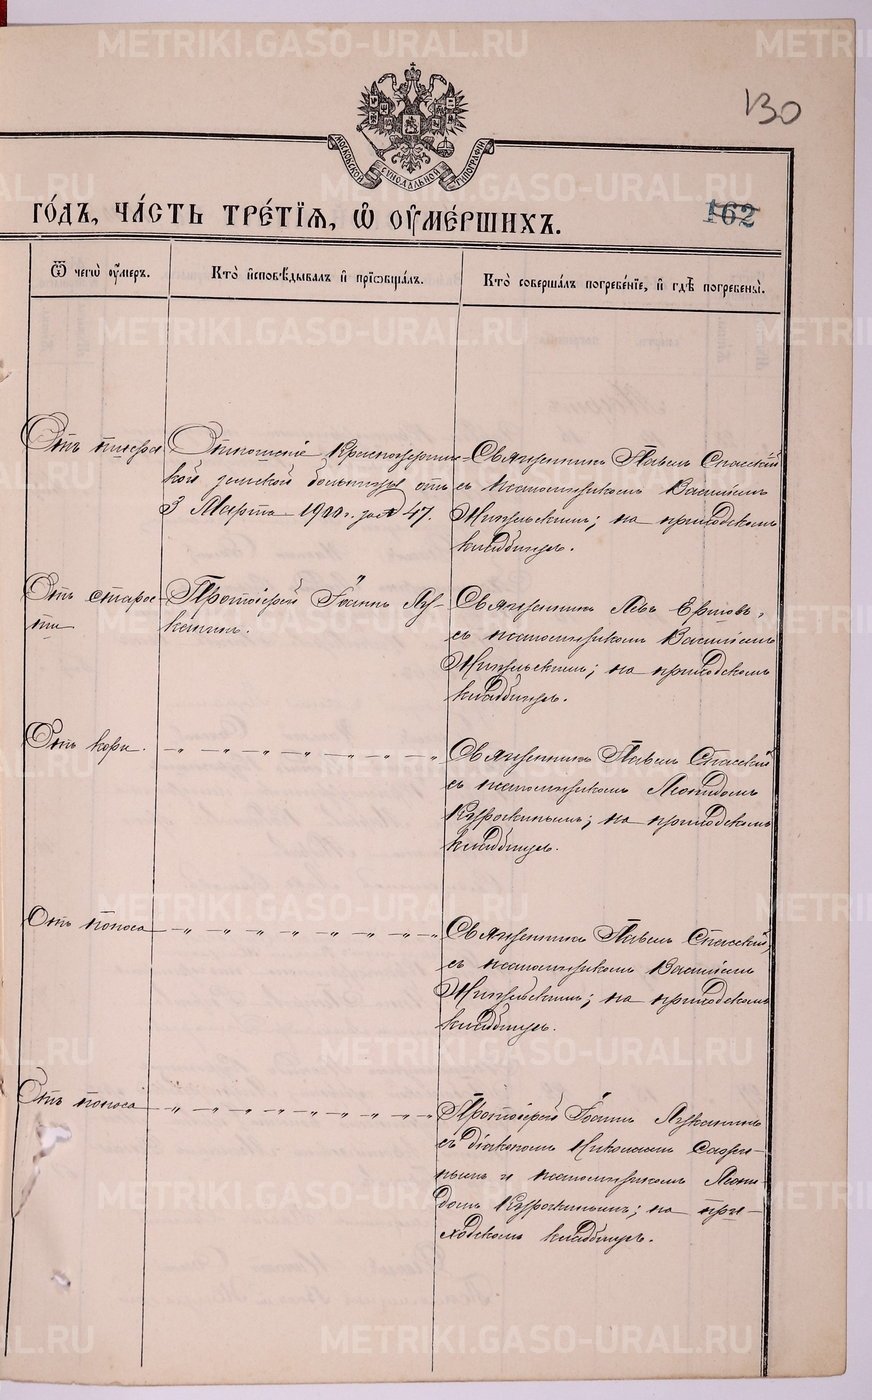 METRIKI.GASO-URAL.RU
130
МОСКОВСКОЙ СѴНОДАЛЬНОЙ ТИПОГРАФІИ
ГО́ДЪ, ЧА́СТЬ ТРЕ́ТІЯ, Ѽ ОУ҆МЕ́РШИХЪ.
162
Ѿ чегѡ̀ оу҆́меръ.
Кто̀ и҆сповѣ́дывалъ и҆ прїѡбща́лъ.
Кто̀ соверша́лъ погребе́нїе, и҆ гдѣ̀ погребены̀.
Отъ тифа
Отношеніе Красноуфимс-
кой земской больницы отъ
3 Марта 1911 г. за № 47.
Священникъ Павелъ Спасскій
съ псаломщикомъ Василіемъ
на приходскомъ
кладбищѣ.
Отъ старос-
ти
Протоіерей Іоаннъ Лу-
канинъ.
Священникъ Левъ Ершовъ,
съ псаломщикомъ Василіемъ
на приходскомъ
кладбищѣ.
Отъ кори.
Священникъ Павелъ Спасскій
съ псаломщикомъ Леонидомъ
на приходскомъ
кладбищѣ.
Отъ поноса
Священникъ Павелъ Спасскій,
съ псаломщикомъ Василіемъ
на приходскомъ
кладбищѣ.
Отъ поноса
Протоіерей Іоаннъ Луканинъ
съ діакономъ Николаемъ
и псаломщикомъ Леони-
домъ на при-
ходскомъ кладбищѣ.